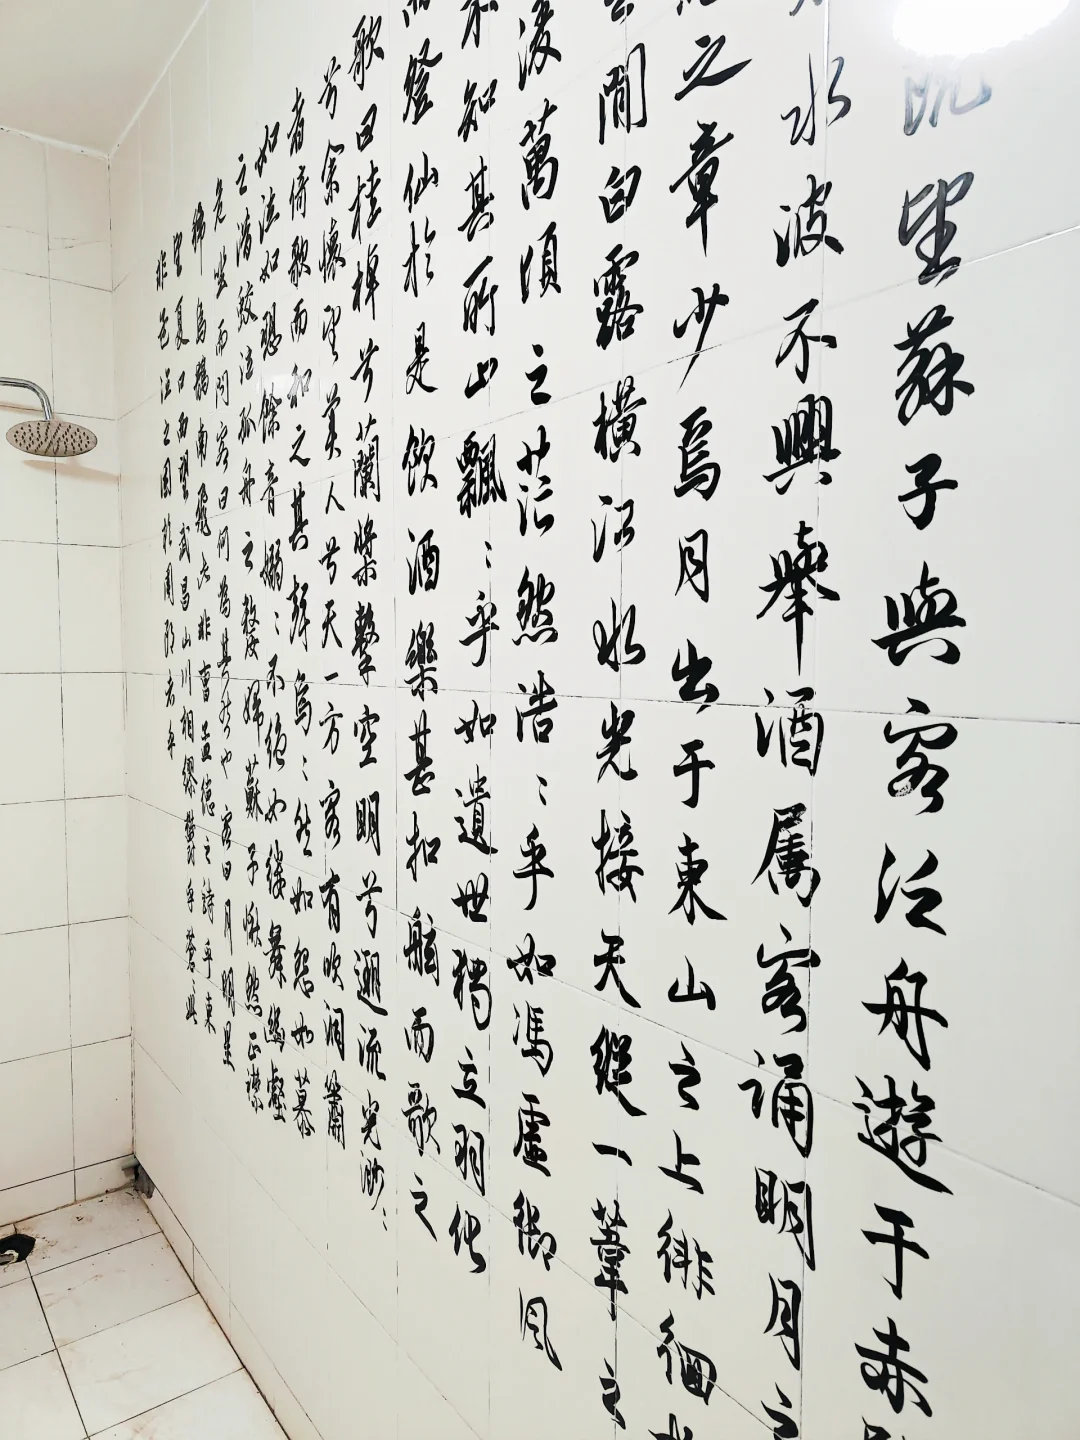 既望蘇子與客泛舟遊于赤
水波不興舉酒属客誦明月之
之章少焉月出于東山之上徘徊
間白露橫江水光接天縱一葦之
凌萬頃之茫然浩〻乎如馮虛御風
不知其所止飄〻乎如遺世獨立羽化
而登仙於是飲酒樂甚扣舷而歌之
歌曰桂棹兮蘭槳擊空明兮遡流光渺〻
兮余懷望美人兮天一方客有吹洞簫
者倚歌而和之其聲焉〻然如怨如慕
如泣如愬餘音嫋〻不絕如縷舞幽壑
之潛蛟泣孤舟之嫠婦蘇子愀然正襟
危坐而問客曰何為其然也客曰月明星
稀烏鵲南飛此非曹孟德之詩乎東
望夏口西望武昌山川相繆鬱乎蒼〻
非孟德之困於周郎者乎